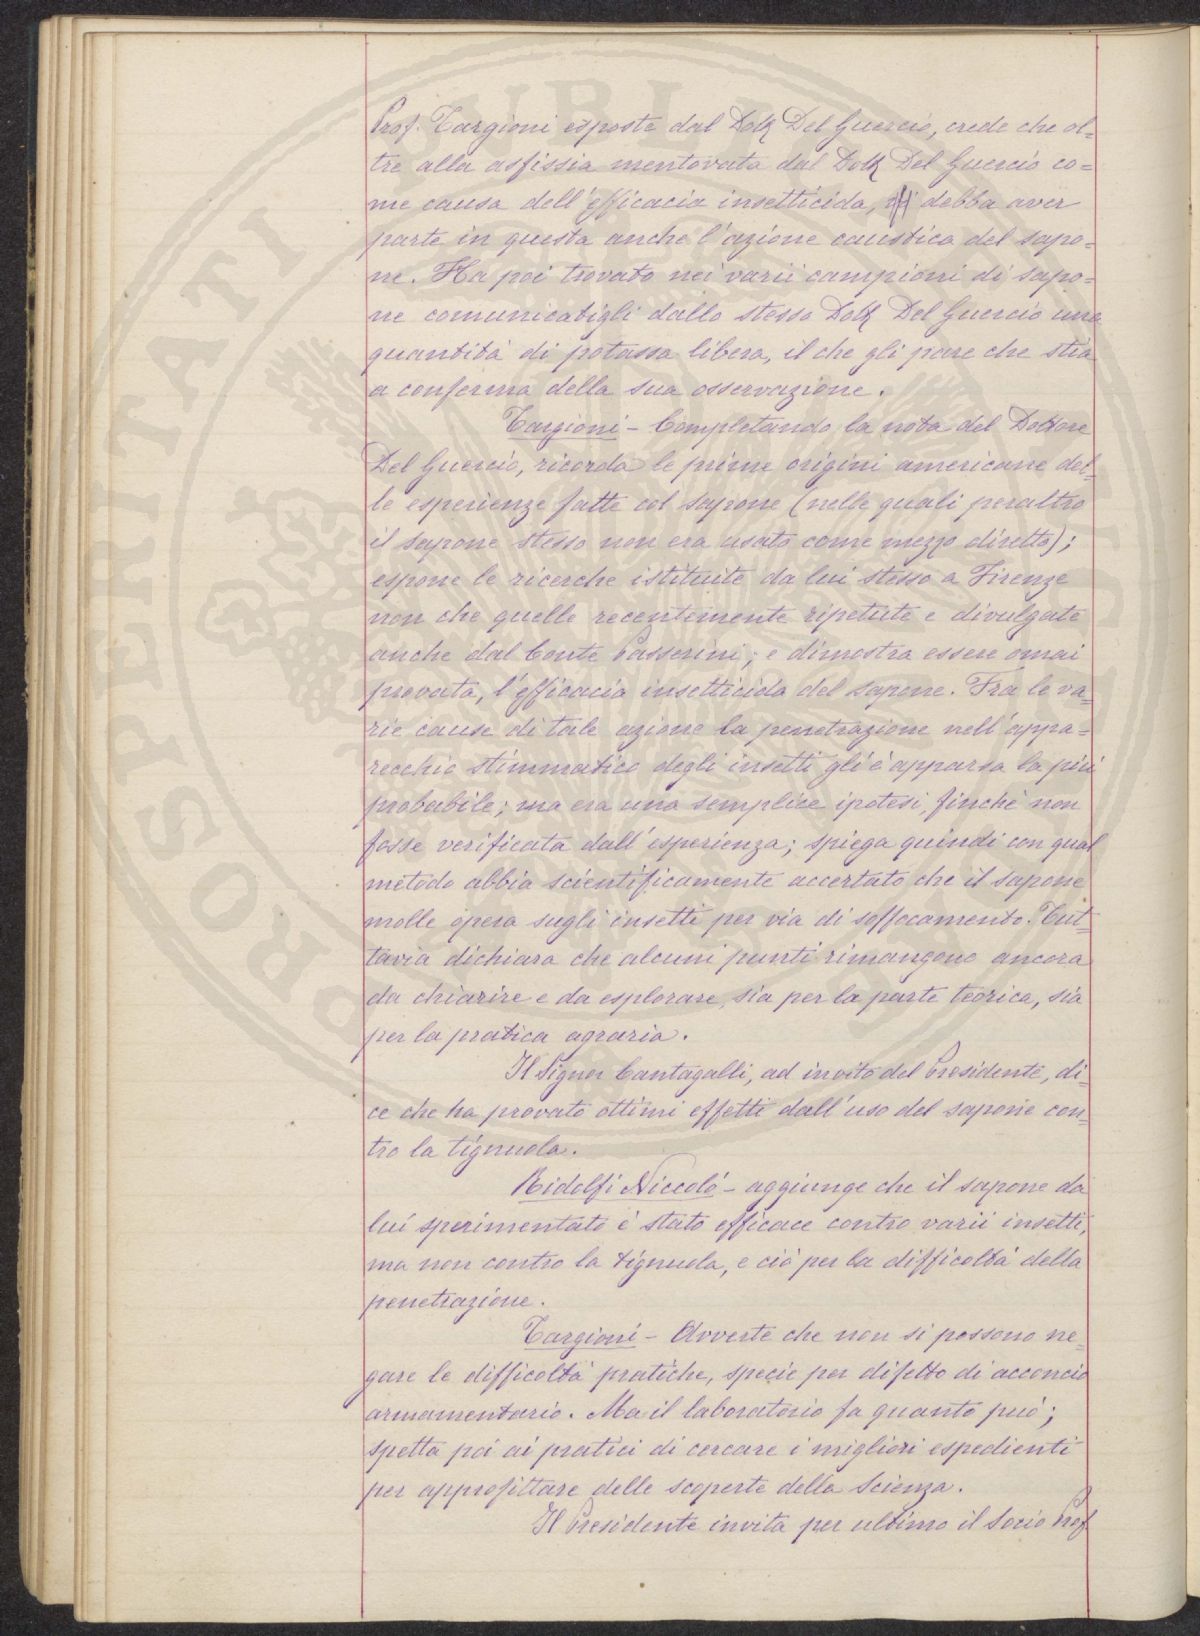 Prof. Targioni esposte dal Dott Del Guercio, crede che ol=
tre alla asfissia mentovata dal Dott Del Guercio co=
me causa dell'efficacia insetticida, debba aver
parte in questa anche l'azione caustica del sapo=
ne. Ha poi trovato nei varii campioni di sapo=
ne comunicatigli dallo stesso Dott Del Guercio una
quantità di potassa libera, il che gli pare che stia
a conferma della sua osservazione.
Targioni - Completando la nota del Dottore
Del Guercio, ricorda le prime origini americane del=
le esperienze fatte col sapone (nelle quali peraltro
il sapone stesso non era usato come mezzo diretto);
espone le ricerche istituite da lui stesso a Firenze
non che quelle recentemente ripetute e divulgate
anche dal Conte Passerini; e dimostra essere omai
provata, l'efficacia insetticida del sapone. Fra le va=
rie cause di tale azione la penetrazione nell'appa=
recchio stimmatico degli insetti gli è apparsa la più
probabile; ma era una semplice ipotesi, finchè non
fosse verificata dall'esperienza; spiega quindi con qual
metodo abbia scientificamente accertato che il sapone
molle opera sugli insetti per via di soffocamento. Tut=
tavia dichiara che alcuni punti rimangono ancora
da chiarire e da esplorare, sia per la parte teorica, sia
per la pratica agraria.
Il Signor Cantagalli, ad invito del Presidente, di=
ce che ha provato ottimi effetti dall'uso del sapone con=
tro la tignuola.
Ridolfi Niccolò - aggiunge che il sapone da
lui sperimentato è stato efficace contro varii insetti,
ma non contro la tignuola, e ciò per la difficoltà della
penetrazione.
Targioni - Avverte che non si possono ne=
gare le difficoltà pratiche, specie per difetto di acconcio
armamentario. Ma il laboratorio fa quanto può;
spetta poi ai pratici di cercare i migliori espedienti
per approfittare delle scoperte della Scienza.
Il Presidente invita per ultimo il Socio Prof
PROSPERITATI PUBLI